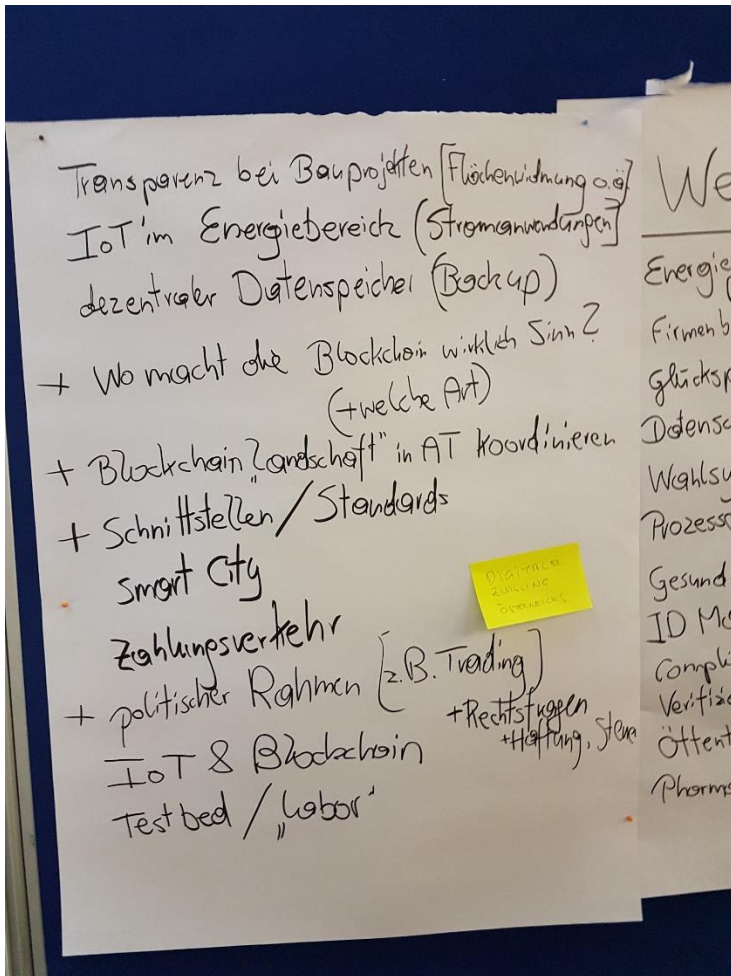 Transparenz bei Bauprojekten [Flächenwidmung o.ä]
IoT im Energiebereich (Stromanwendungen]
dezentraler Datenspeicher (Backup)
+ Wo macht die Blockchain wirklich Sinn?
(+welche Art)
+ Blockchain „Landschaft" in AT koordinieren
+ Schnittstellen / Standards
Smart City
Zahlungsverkehr
+ politischer Rahmen [z.B. Trading]
+Rechtsfragen
+Haftung, Steue
IoT & Blockchain
Testbed / „Labor"
DIGITALER
ZWILLING
ÖSTERREICHS
We
Energie
Firmenb
Glücksp
Datensc
Wahlsu
Prozesso
Gesund
ID Ma
Compli
Verifizie
Öffent
Pharma